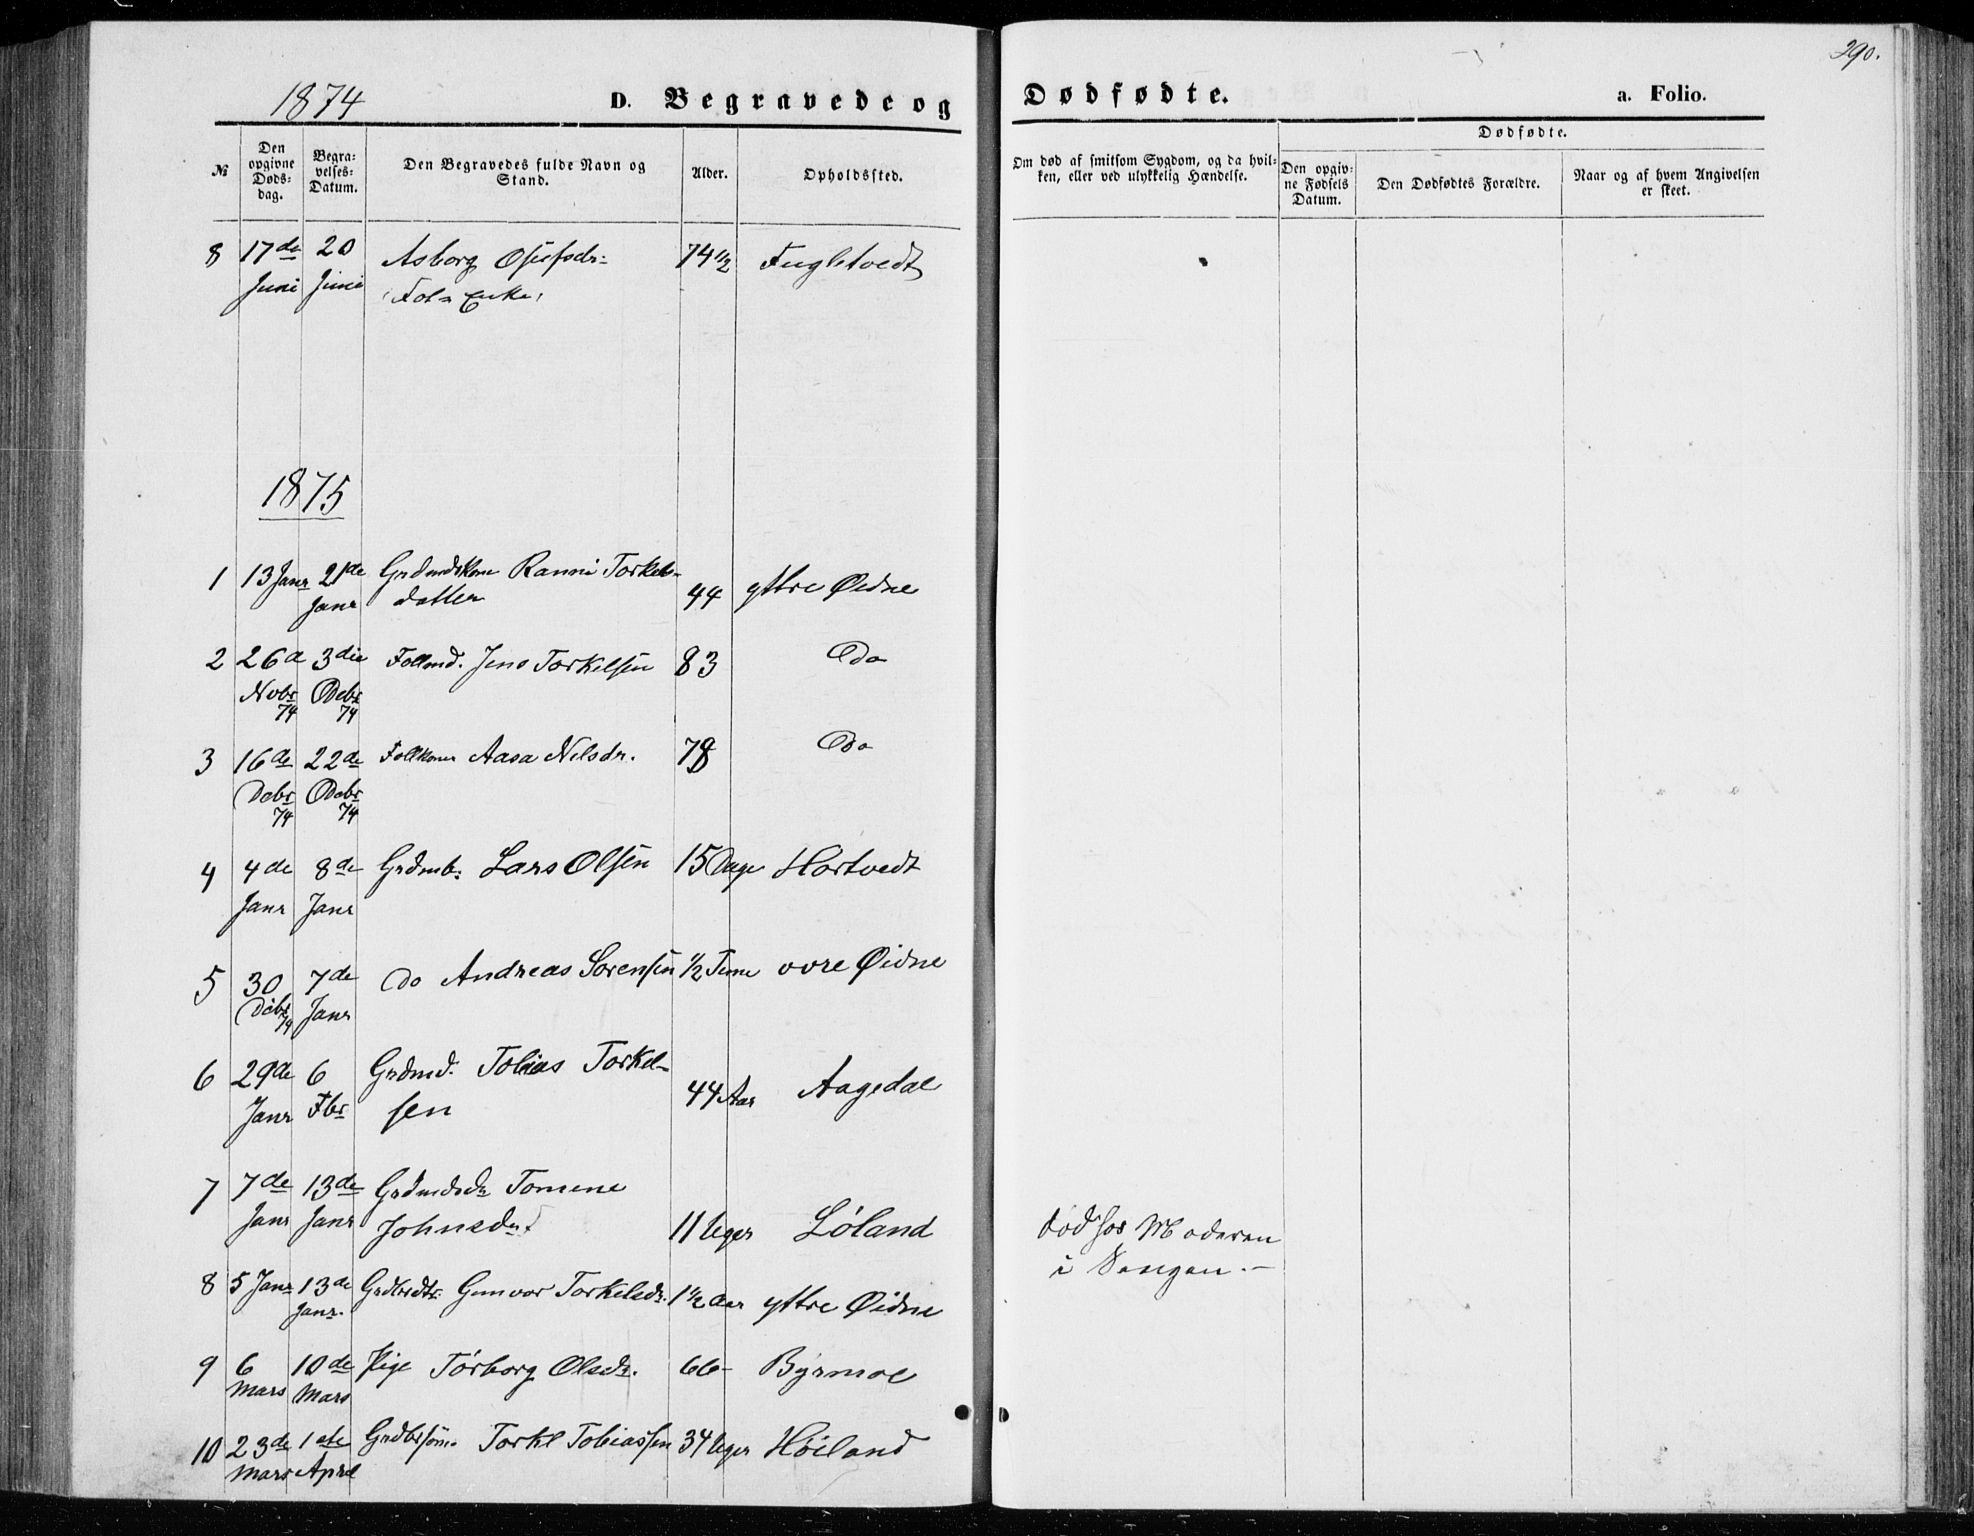 290.
1874
D. Begravede og Dødfødte. a. Folio.
№
Den opgivne Døds-dag.
Begra-velses-Datum.
Den Begravedes fulde Navn og Stand.
Alder.
Opholdssted.
Om død af smitsom Sygdom, og da hvil-ken, eller ved ulykkelig Hændelse.
Dødfødte.
Den opgiv-ne Fødsels Datum.
Den Dødfødtes Forældre.
Naar og af hvem Angivelsen er skeet.
8 17de 20 Asborg 74 1/2 Fugletvedt
Juni Juni Fol= Enke,
1875
1 13 Janr 21de Grdmdskone Ranni Torkels-
Janr datter 44 yttre Øidne
2 26d 3die Follmd. Jens Torkelsen 83 Do
Nobr Debr
74 74
3 16de 22de Follkone Aasa Nilsdr. 78 Do
Debr Debr
74 74
4 4de 8de Grdmb: Lars Olsen 15 Dage Hortvedt
Janr Janr
5 30 7de do Andreas Sorensen 1/2 Time ovre Øidne
Debr Janr
74
6 29de 6 Grdmd. Tobias Torkel-
Janr Fbr sen 44 Aar Aagedal
7 7de 13de Grdmdsdr Tomene
Janr Janr Johnsdr 11 Uger Løland død hos Moderen
i Sengen.-
8 5 Janr 13de Gunvor Torkelsdr. 1 1/2 Aar yttre Øidne
Janr.
9 6 10de Pige Torborg Olsdr. 66- Byrmoe
Mars Mars
10 23de 1ste Grdbrsøn. Torkel Tobiassen 34 Uger Høiland
Mars April